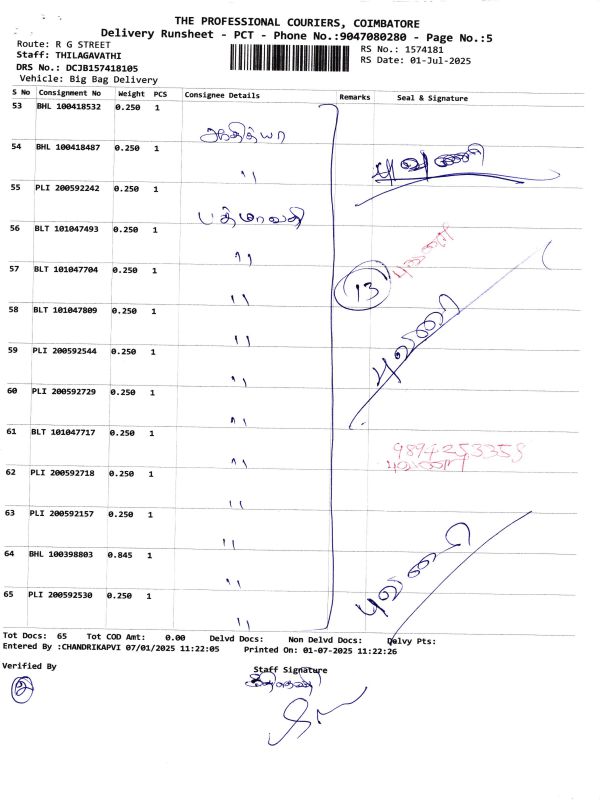 THE PROFESSIONAL COURIERS, COIMBATORE
Delivery Runsheet - PCT - Phone No.:9047080280 - Page No.:5
Route: R G STREET
Staff: THILAGAVATHI
DRS No.: DCJB157418105
Vehicle: Big Bag Delivery
RS No.: 1574181
RS Date: 01-Jul-2025
S No Consignment No Weight PCS Consignee Details Remarks Seal & Signature
53 BHL 100418532 0.250 1
54 BHL 100418487 0.250 1
"
55 PLI 200592242 0.250 1
பத்மாவதி
56 BLT 101047493 0.250 1
"
57 BLT 101047704 0.250 1
"
13
58 BLT 101047809 0.250 1
"
59 PLI 200592544 0.250 1
"
60 PLI 200592729 0.250 1
"
61 BLT 101047717 0.250 1
"
62 PLI 200592718 0.250 1
"
63 PLI 200592157 0.250 1
"
64 BHL 100398803 0.845 1
"
65 PLI 200592530 0.250 1
"
Tot Docs: 65 Tot COD Amt: 0.00 Delvd Docs: Non Delvd Docs: Delvy Pts:
Entered By :CHANDRIKAPVI 07/01/2025 11:22:05 Printed On: 01-07-2025 11:22:26
Verified By
Staff Signature